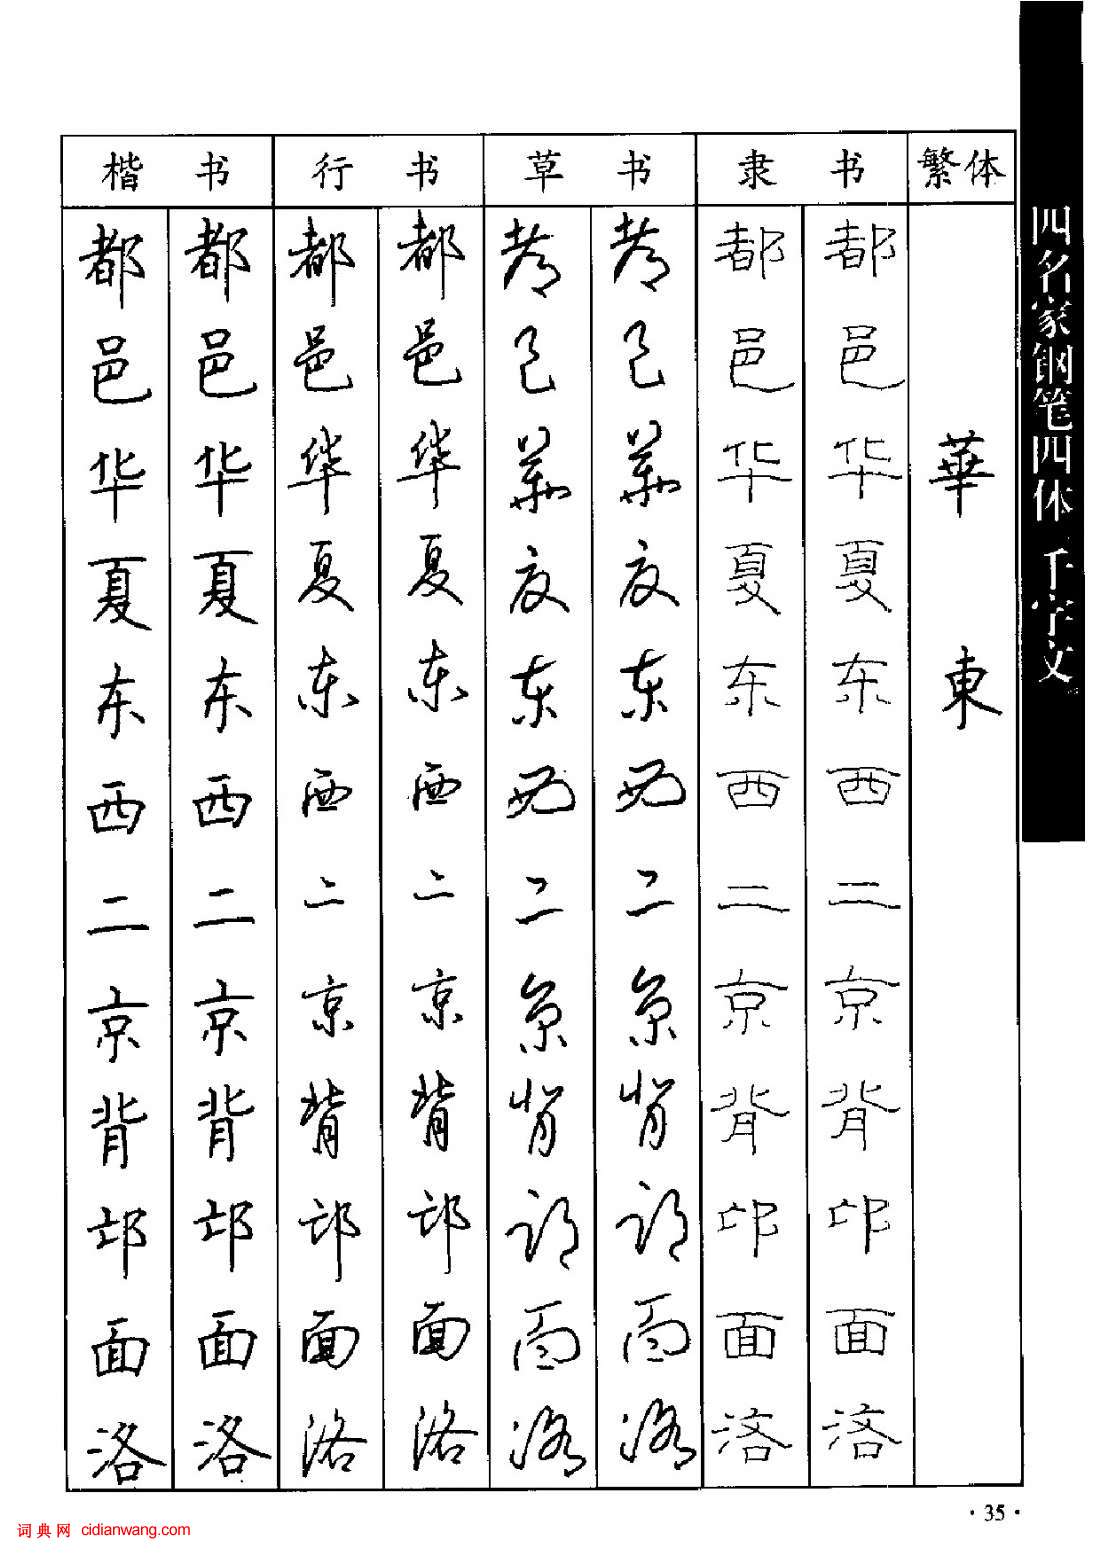 楷书 行书 草书 隶书 繁体
都邑华夏东西二京背邙面洛
都邑华夏东西二京背邙面洛
都邑华夏东西二京背邙面洛
都邑华夏东西二京背邙面洛
都邑华夏东西二京背邙面洛
都邑华夏东西二京背邙面洛
都邑华夏东西二京背邙面洛
都邑华夏东西二京背邙面洛
華東
四名家钢笔四体 千字文
·35·
词典网 cidianwang.com